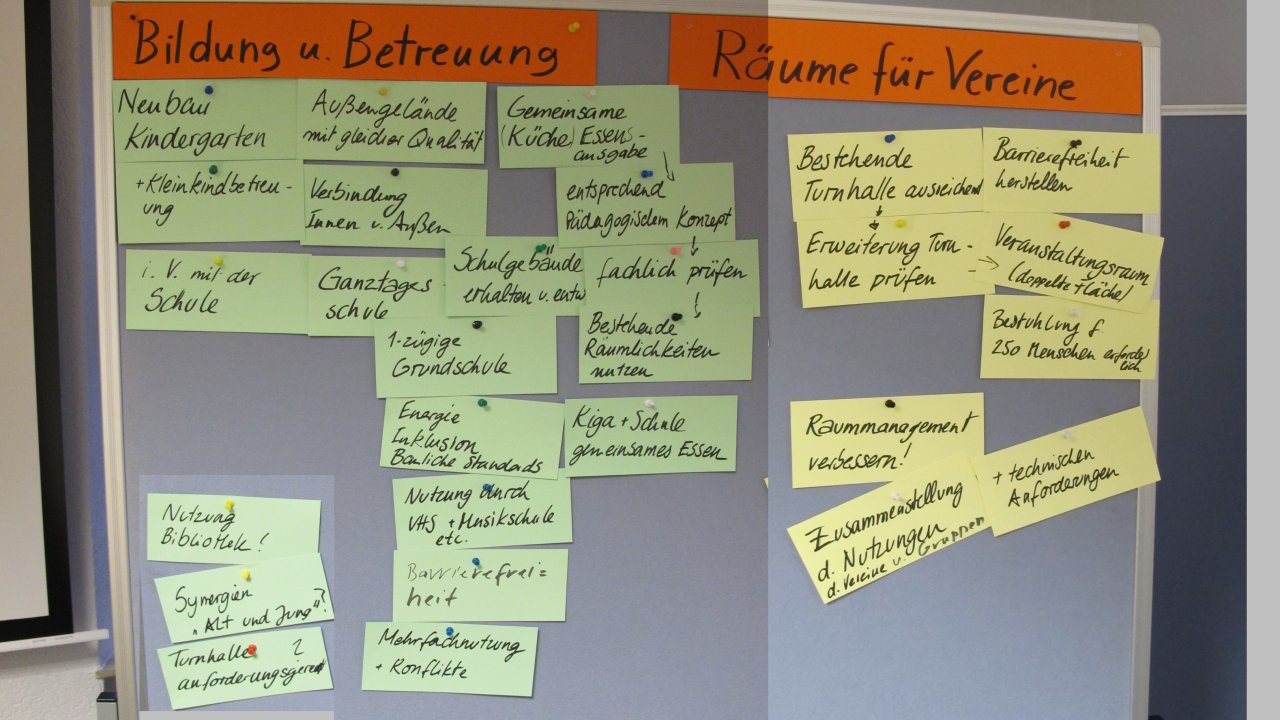 Bildung u. Betreuung
Neubau
Kindergarten
+Kleinkindbetreu-
ung
i. V. mit der
Schule
Außengelände
mit gleicher Qualität
Verbindung
Innen u. Außen
Ganztages-
schule
Gemeinsame
(Küche) Essens-
ausgabe
entsprechend
Pädagogischem Konzept
Schulgebäude
erhalten u. entw
fachlich prüfen
1-zügige
Grundschule
Bestehende
Räumlichkeiten
nutzen
Energie
Inklusion
Bauliche Standards
Kiga + Schule
gemeinsames Essen
Nutzung durch
VHS + Musikschule
etc.
Barrierefrei=
heit
Mehrfachnutzung
+ Konflikte
Nutzung
Bibliothek!
Synergien
"Alt und Jung"?
Turnhalle ?
anforderungsgerecht
Räume für Vereine
Bestehende
Turnhalle ausreichend
Barrierefreiheit
herstellen
Erweiterung Turn-
halle prüfen
Veranstaltungsraum
(doppelte Fläche)
Bestuhlung f.
250 Menschen erforder
lich
Raummanagement
verbessern!
Zusammenstellung
d. Nutzungen
d. Vereine u. Gruppen
+ technischen
Anforderungen